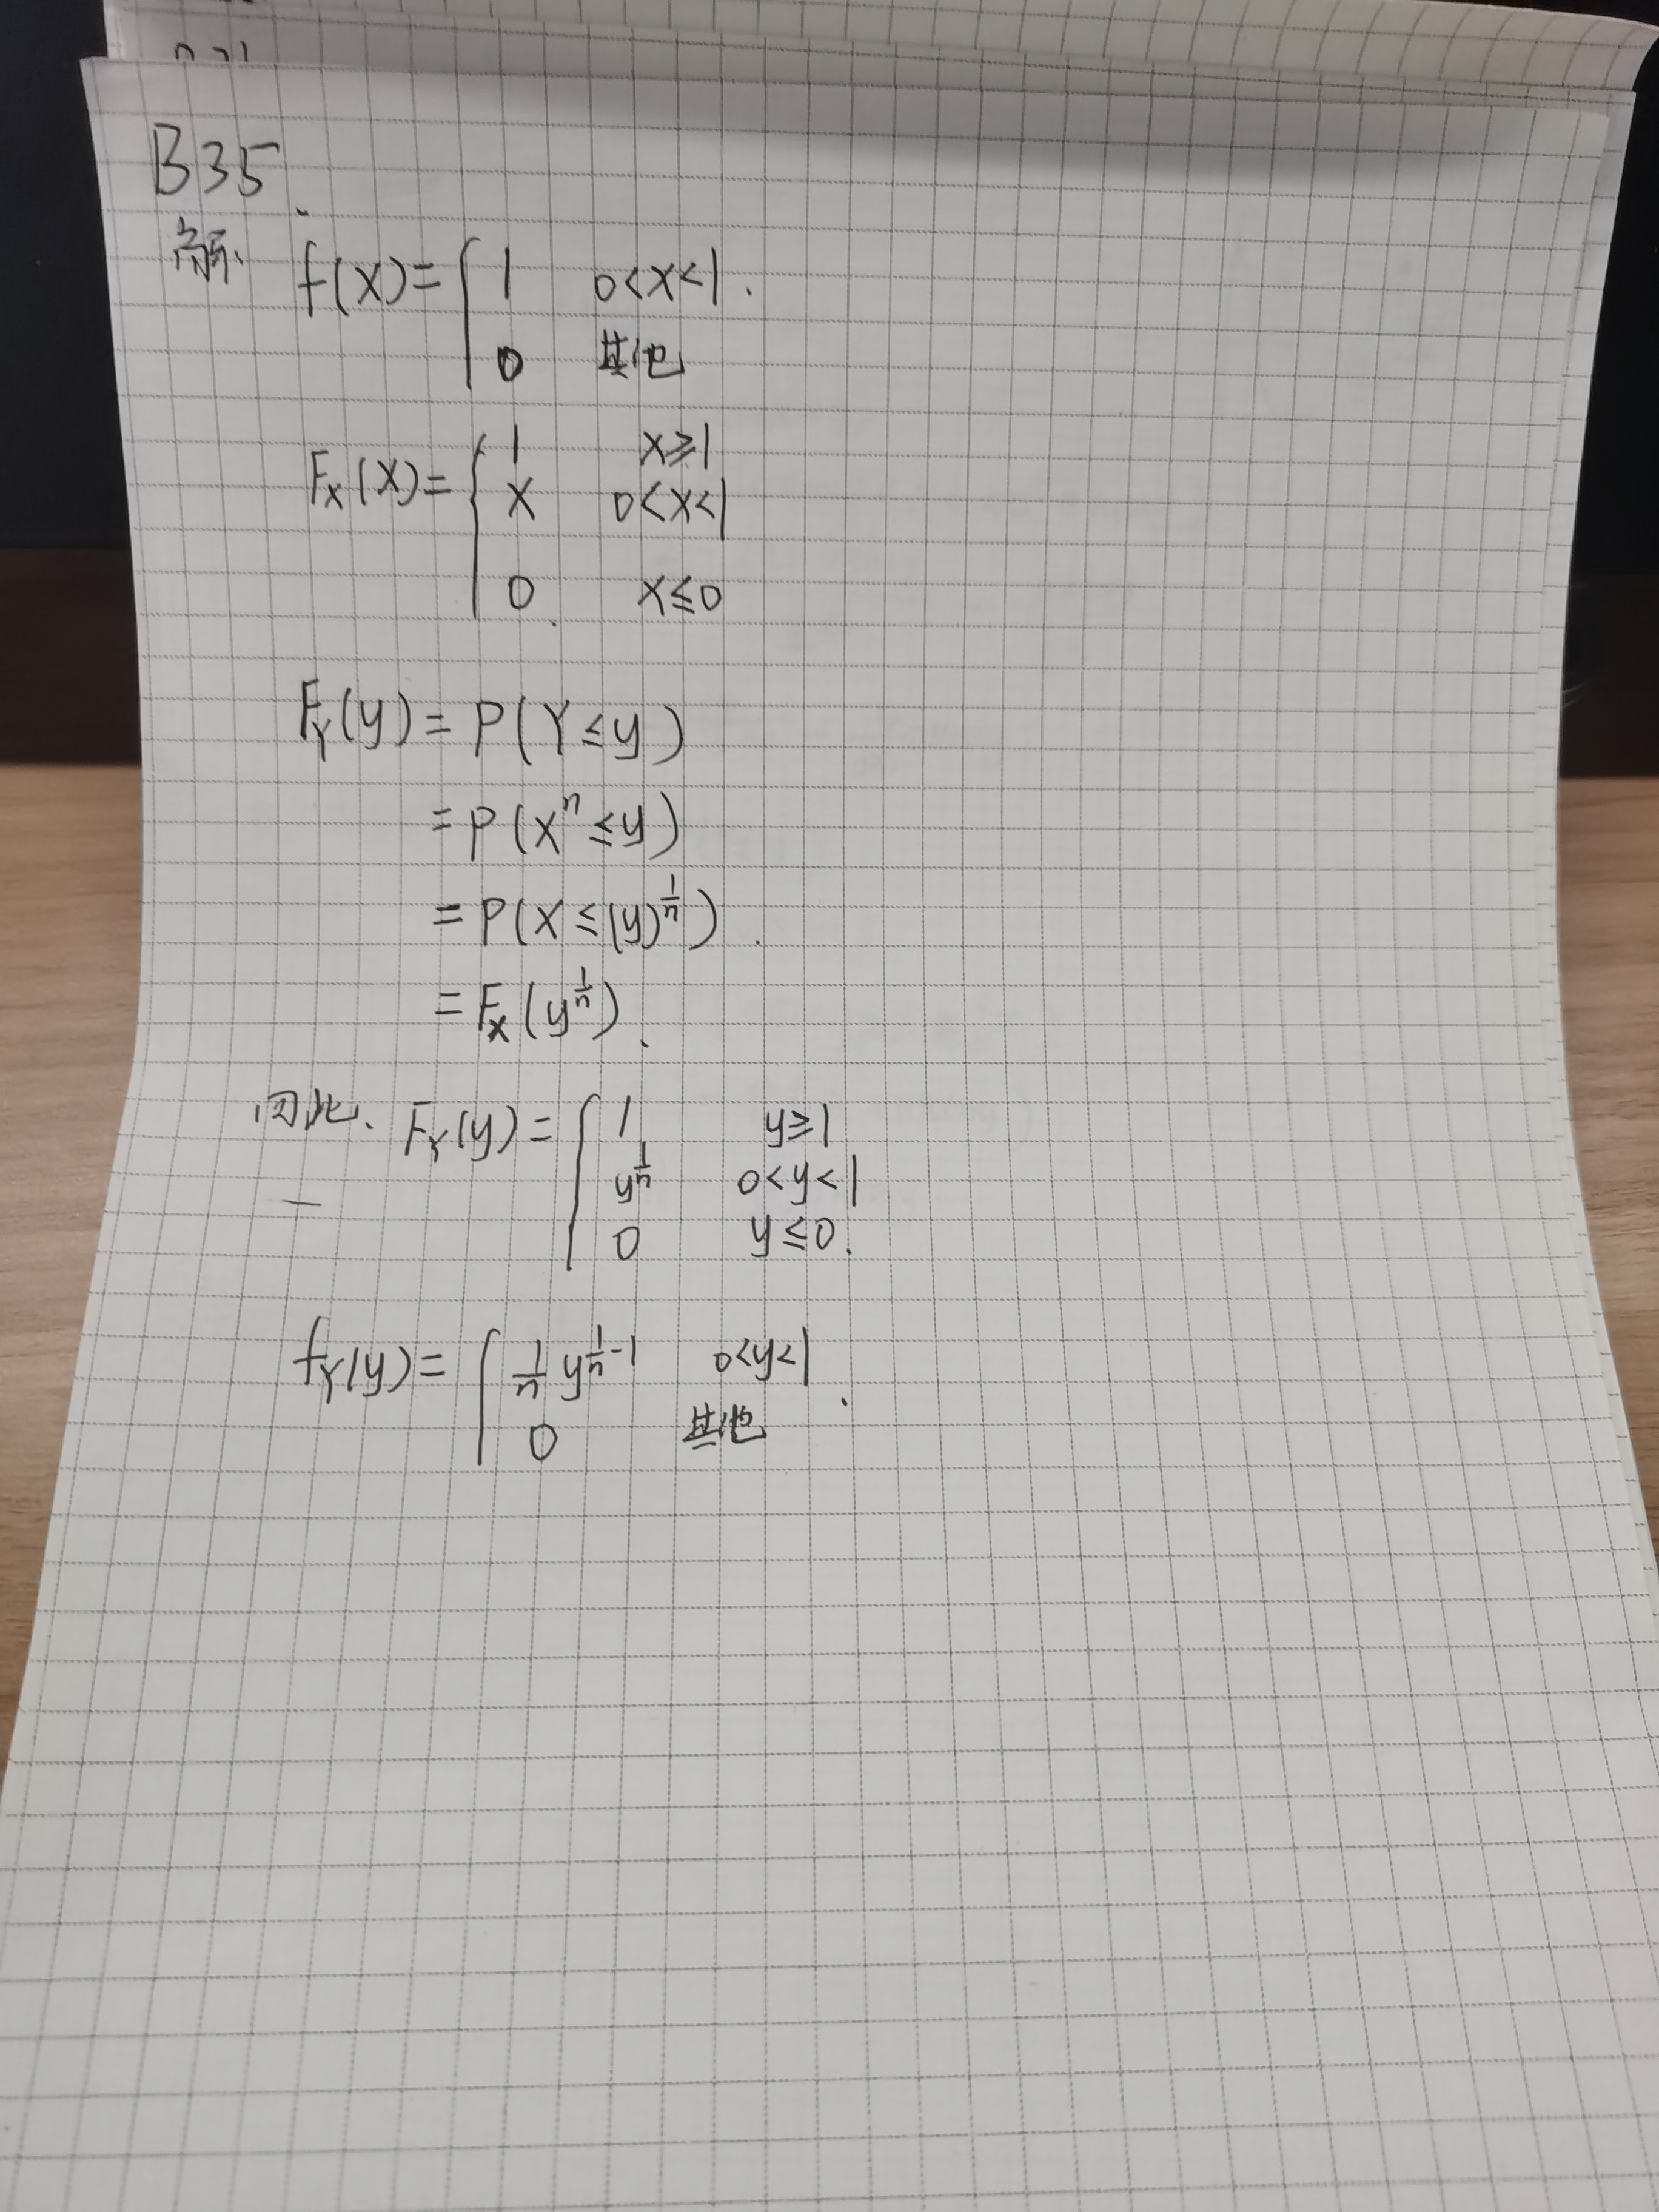 B35.
解. f(x)={ 1 0<x<1.
0 其他
F_X(x)={ 1 x≥1
x 0<x<1
0 x≤0
F_Y(y)=P(Y≤y)
=P(X^n≤y)
=P(X≤(y)^{1/n}).
=F_X(y^{1/n}).
因此. F_Y(y)={ 1 y≥1
y^{1/n} 0<y<1
0 y≤0.
f_Y(y)={ 1/n y^{1/n-1} 0<y<1
0 其他.